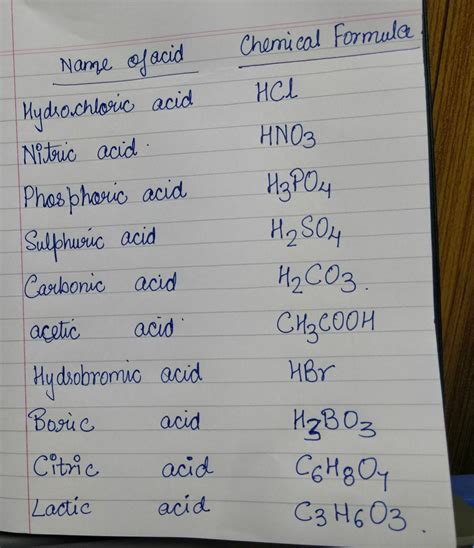 Name of acid Chemical Formula.
Hydrochloric acid HCl
Nitric acid. HNO3
Phosphoric acid H3PO4
Sulphuric acid H2SO4
Carbonic acid H2CO3.
acetic acid CH3COOH
Hydrobromic acid HBr
Boric acid H3BO3
Citric acid C6H8O7
Lactic acid C3H6O3.